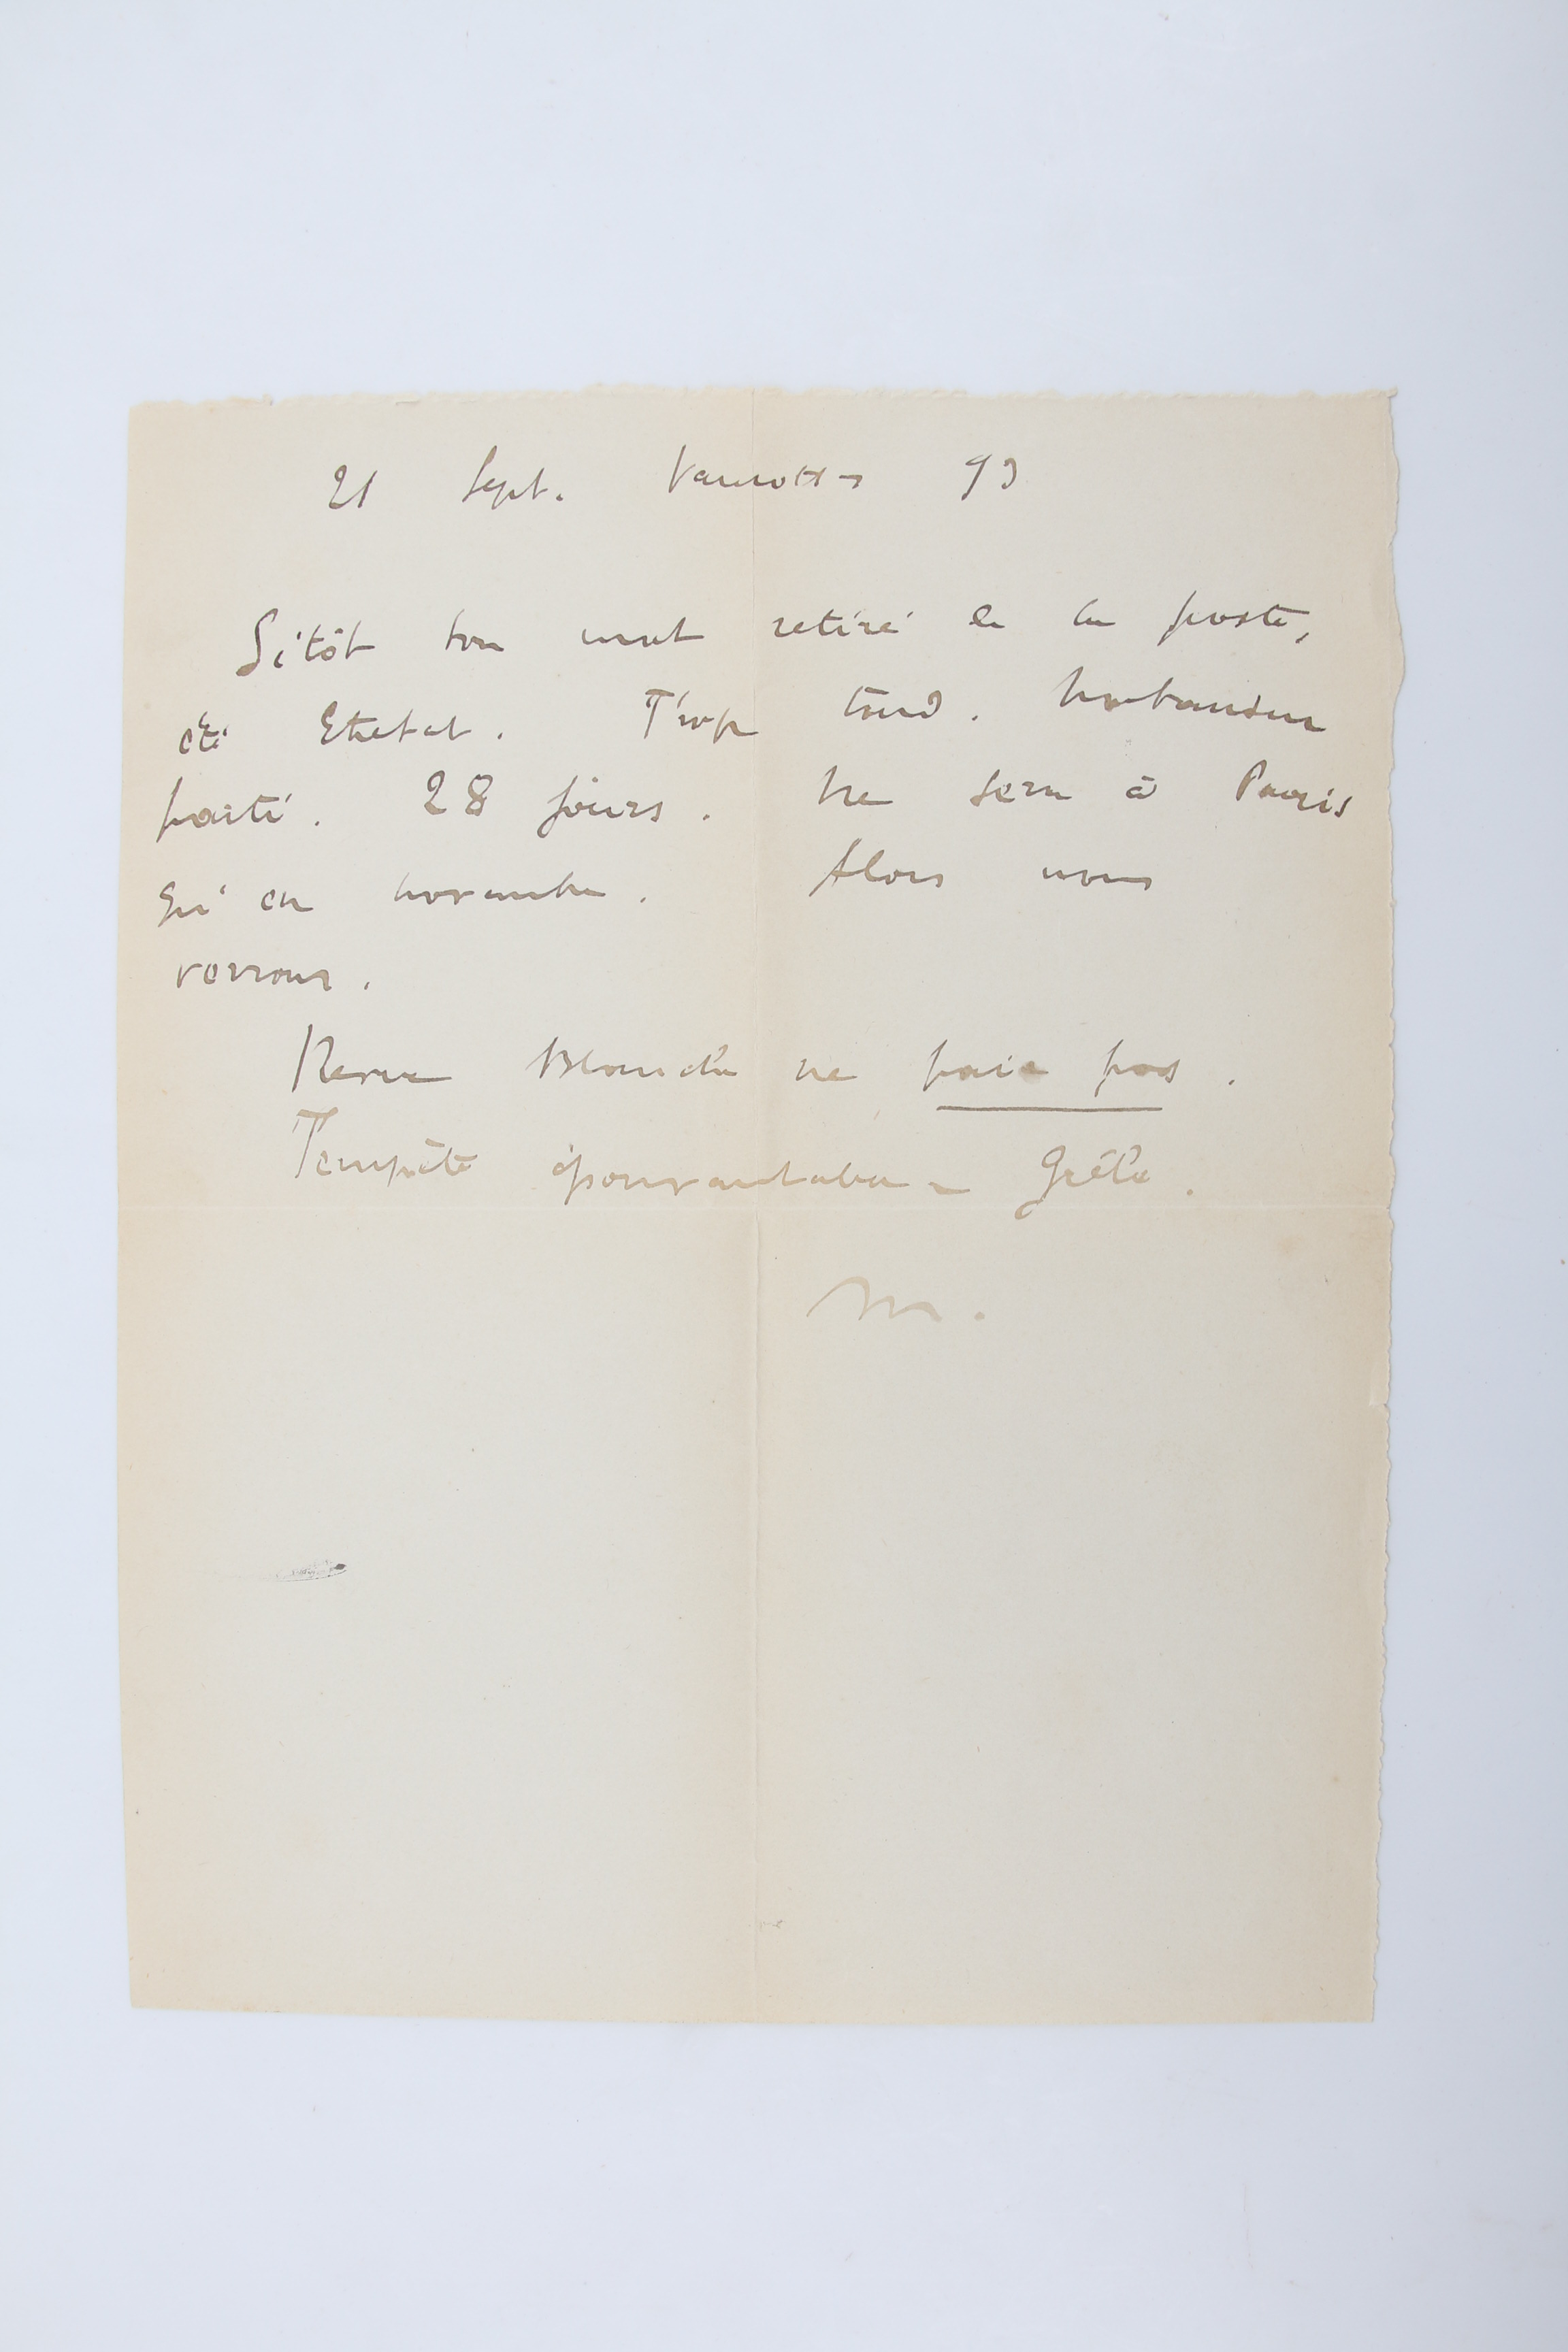 21 Sept. Vaucottes 93
Sitôt ton mot retiré de la poste,
été Etretat. Trop tard. Natanson
parti. 28 jours. Ne sera à Paris
qu'en novembre. Alors nous
verrons.
Revue Blanche ne paie pas.
Tempête épouvantable – Grêle.
M.